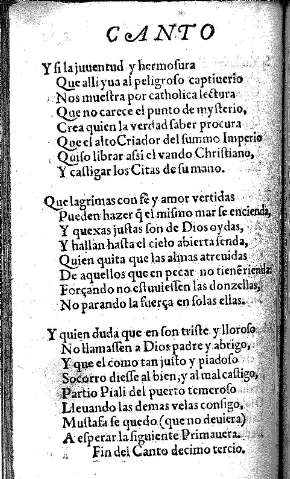 CANTO
Y si la juuentud y hermosura
Que alli yua al peligroso captiuerio
Nos muestra por catholica lectura
Que no carece el punto de mysterio,
Crea quien la verdad saber procura
Que el alto Criador del summo Imperio
Quiso librar assi el vando Christiano,
Y castigar los Citas de su mano.
Que lagrimas con fè y amor vertidas
Pueden hazer q̃ el mismo mar se encienda,
Y quexas justas son de Dios oydas,
Y hallan hasta el cielo abierta senda,
Quien quita que las almas atreuidas
De aquellos que en pecar no tienẽ rienda
Forçando no estuuiessen las donzellas,
No parando la fuerça en solas ellas.
Y quien duda que en son triste y lloroso
No llamassen a Dios padre y abrigo,
Y que el como tan justo y piadoso
Socorro diesse al bien, y al mal castigo,
Partio Piali del puerto temeroso
Lleuando las demas velas consigo,
Mustafa se quedo (que no deuiera)
A esperar la siguiente Primauera.
Fin del Canto decimo tercio.